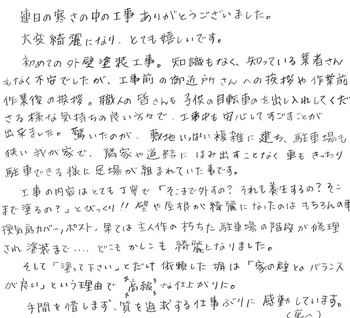 連日の寒さの中の工事ありがとうございました。
大変綺麗になり、とても嬉しいです。
初めての外壁塗装工事。知識もなく、知っている業者さん
もなく不安でしたが、工事前の御近所さんへの挨拶や作業前
作業後の挨拶。職人の皆さんも子供の自転車を出し入れしてくだ
さる様な気持ちの良い方々で、工事中も安心してすごすことが
出来ました。驚いたのが、敷地いっぱい複雑に建ち、駐車場も
狭い我が家で、隣家や道路にはみ出すことなく車もきっちり
駐車できる様に足場が組まれていた事です。
工事の内容はとても丁寧で「そこまで外すの?それも養生するの?そこ
まで塗るの?」とびっくり!!壁や屋根が綺麗になったのはもちろんの事
換気扇カバー、ポスト、果ては主人作の朽ちた駐車場の階段が修理
され塗装まで‥‥どこもかしこも綺麗になりました。
そして「塗って下さい」とだけ依頼した塀は「家の壁とのバランス
が良い」という理由で"高級"な仕上がりに。
手間を惜しまず、質を追求する仕事ぶりに感動しています。